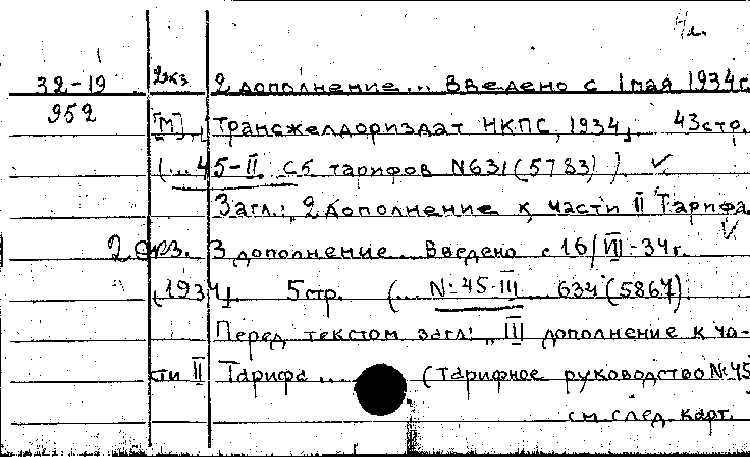 4л.
32-19 2экз 2 дополнение... Введено с 1 мая 1934 г.
952 [М], Трансжелдориздат НКПС, 1934]. 43 стр.
(...45-II. Сб тарифов N631(5783))
Загл.: „2 дополнение к части II Тарифа
2 экз. 3 дополнение... Введено с 16/VII-34 г.
[1934]. 5 стр. (... №45-III ... 634 (5867).
Перед текстом загл: „III дополнение к ча-
сти II Тарифа... (Тарифное руководство №45
см. след. карт.